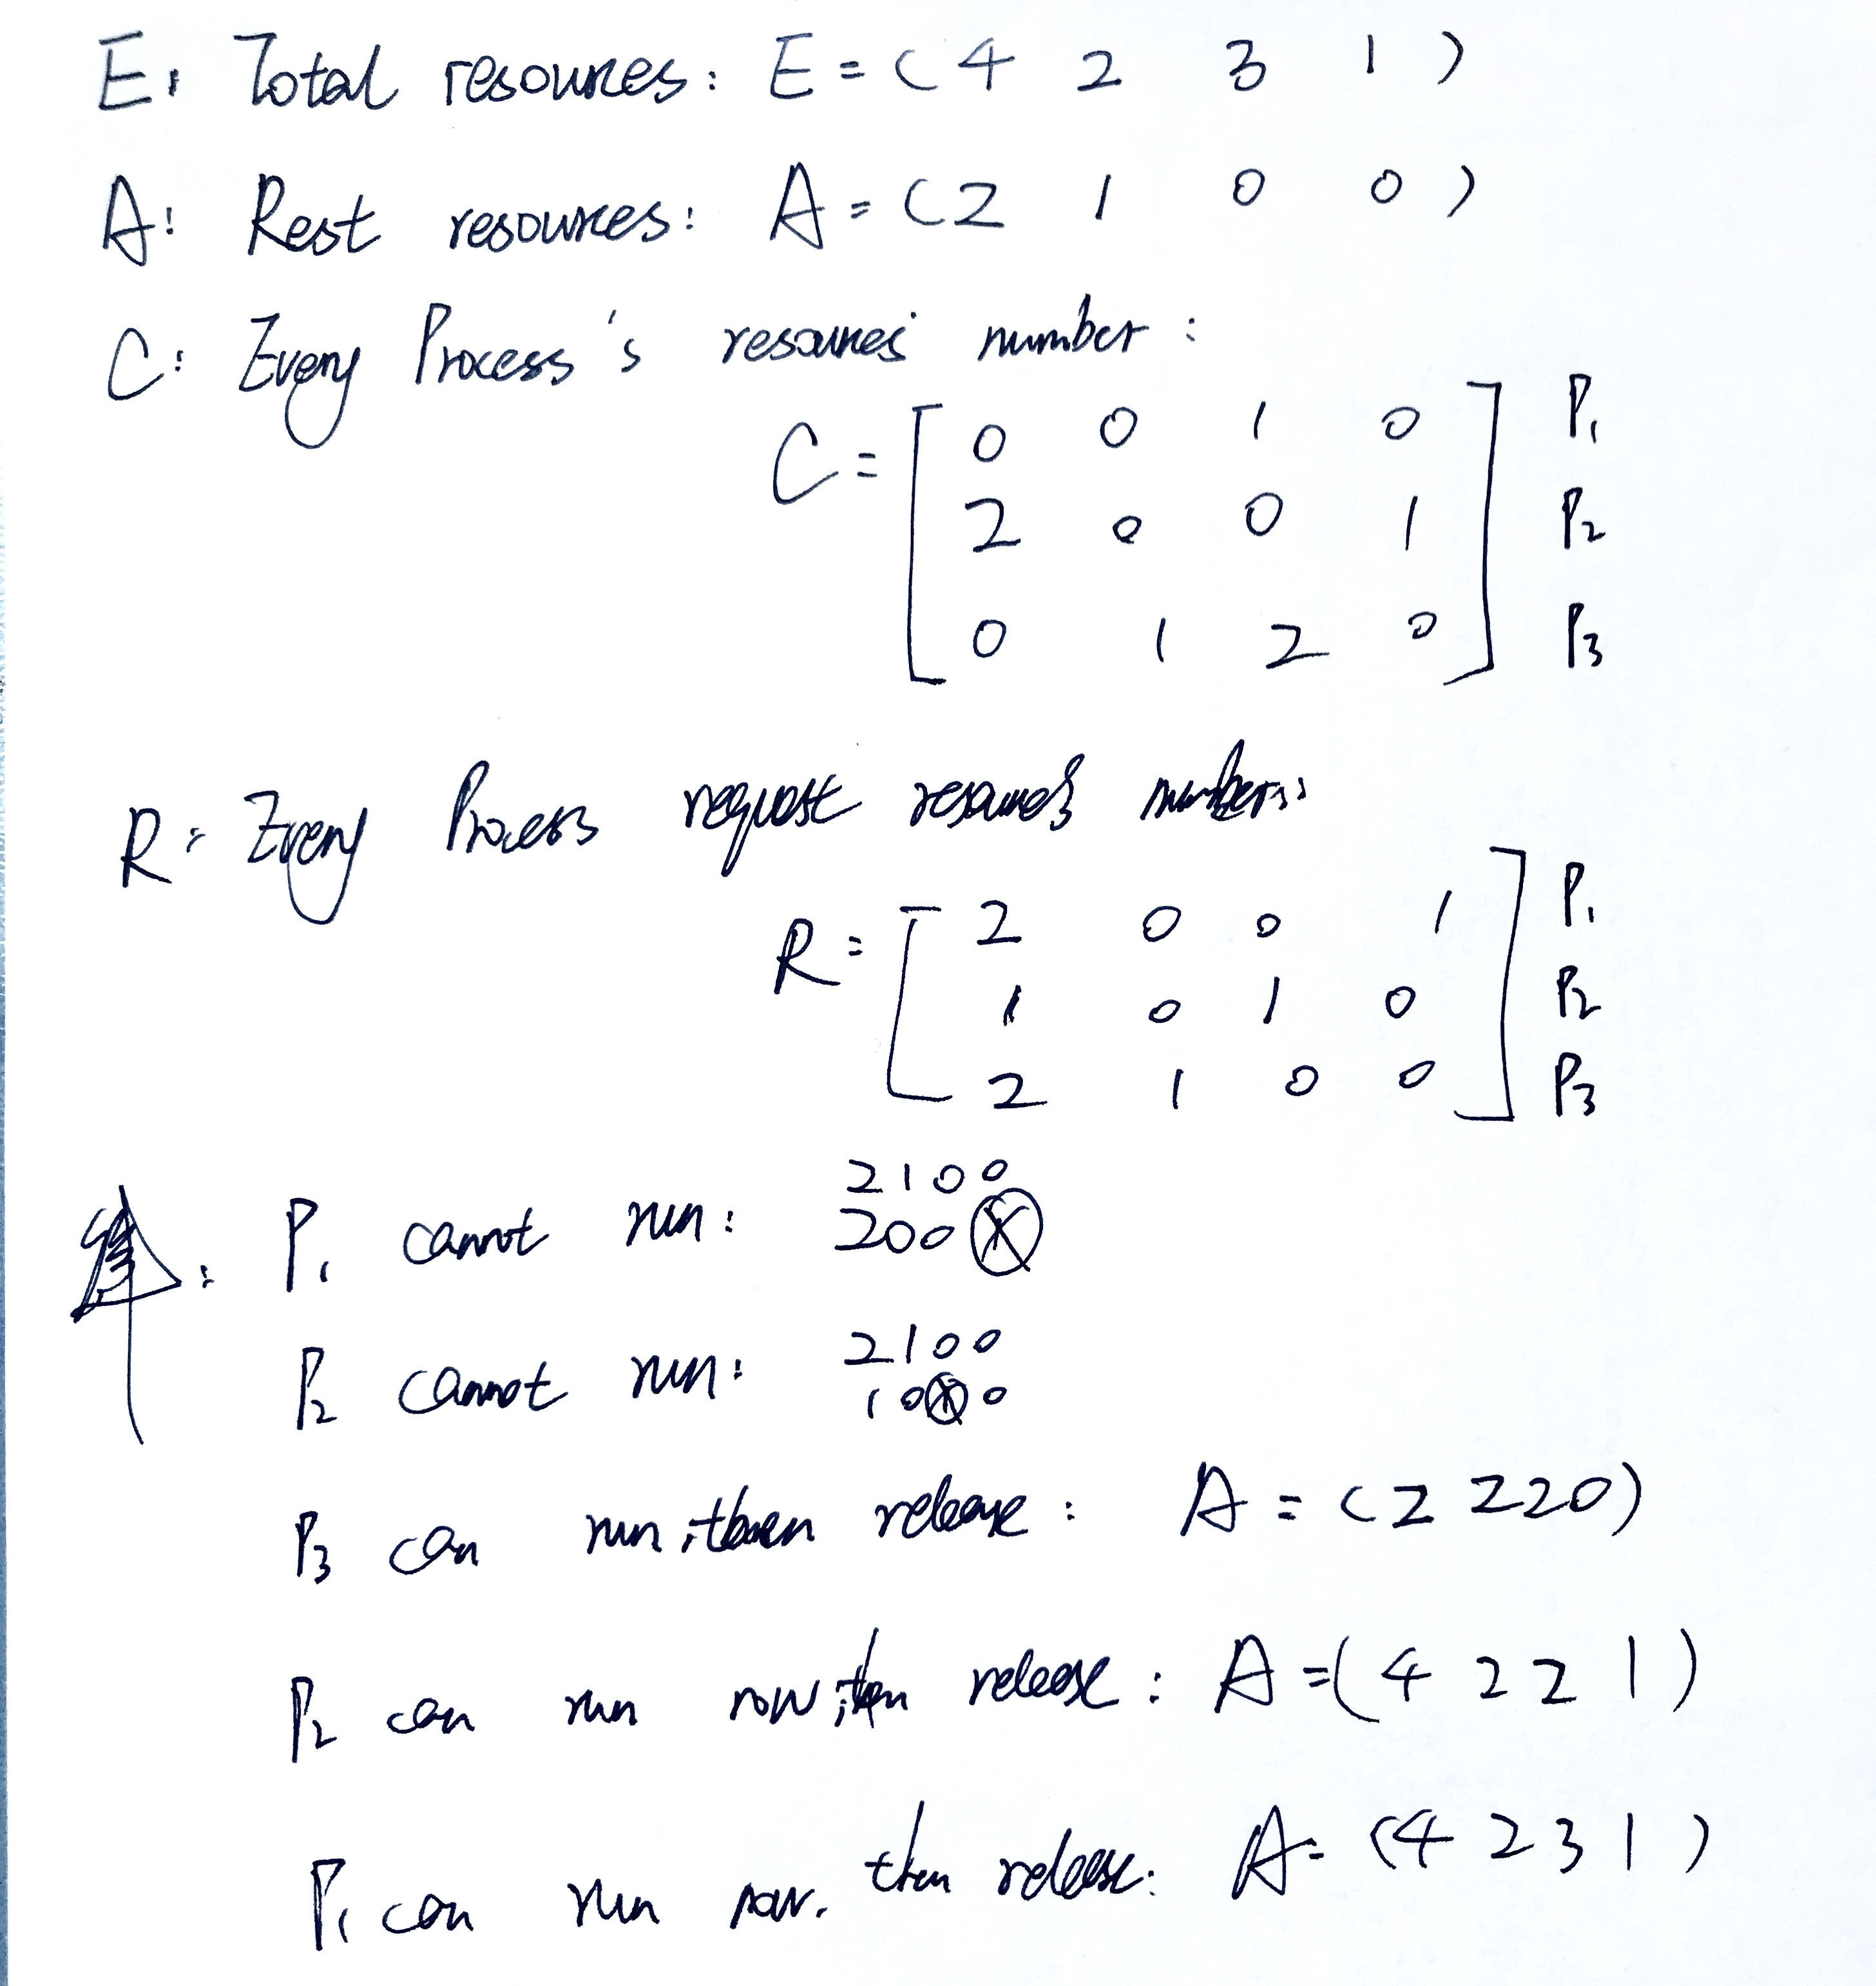 E: Total resources: E = ( 4 2 3 1 )
A: Rest resources: A = ( 2 1 0 0 )
C: Every Process's resources number :
C = [ 0 0 1 0 ] P1
2 0 0 1 P2
0 1 2 0 P3
R: Every Process request resources numbers:
R = [ 2 0 0 1 ] P1
1 0 1 0 P2
2 1 0 0 P3
2100
: P1 cannot run : 200
2100
P2 cannot run : 10 0
P3 can run, then release : A = ( 2 2 2 0 )
P2 can run now, then release : A = ( 4 2 2 1 )
P1 can run now. then release: A = ( 4 2 3 1 )